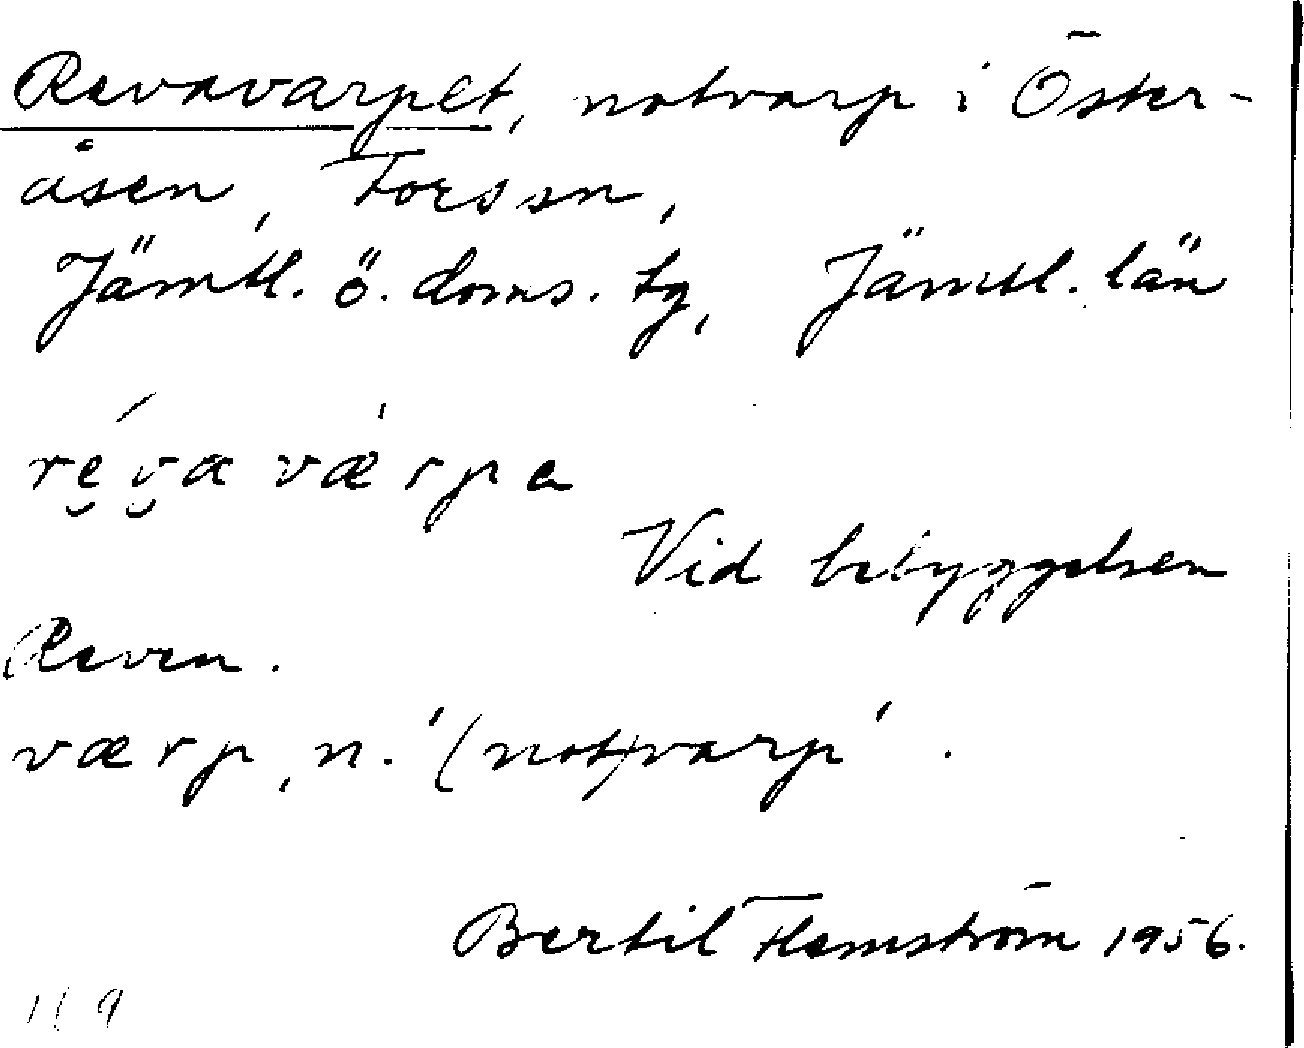 Revavarpet, notvarp i Öster-
åsen, Fors sn,
Jämtl. ö. doms. tg, Jämtl. län
ré̮v̮a væ̀rpa
Vid bebyggelsen
Reven.
værp, n. '(not)varp'.
Bertil Flemström 1956.
119